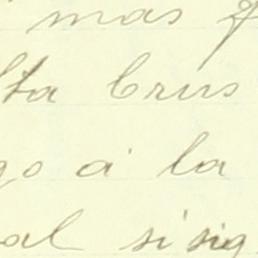 mas
ta brus
go a la
al sisig